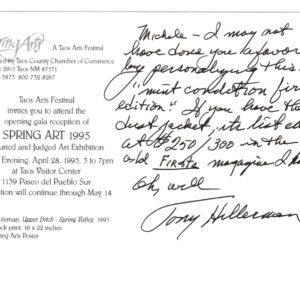 Spring Arts
A Taos Arts Festival
by Taos County Chamber of Commerce
2915 Taos NM 87571
-3873 800-732-8267
Taos Arts Festival
invites you to attend the
opening gala reception of
SPRING ART 1995
Juried and Judged Art Exhibition
Evening, April 28, 1995, 5 to 7pm
at Taos Visitor Center
1139 Paseo del Pueblo Sur
ition will continue through May 14
oleman, Upper Ditch - Spring Valley, 1995
ock print, 16 x 22 inches
ring Arts Poster
Michele - I may not
have done you a favor
by personalizing this
"mint condition fir
edition." If you have the
dust jacket, its list ed
at $250/300 in the
old Firsts magazine I ha
Oh, well
Tony Hillerman